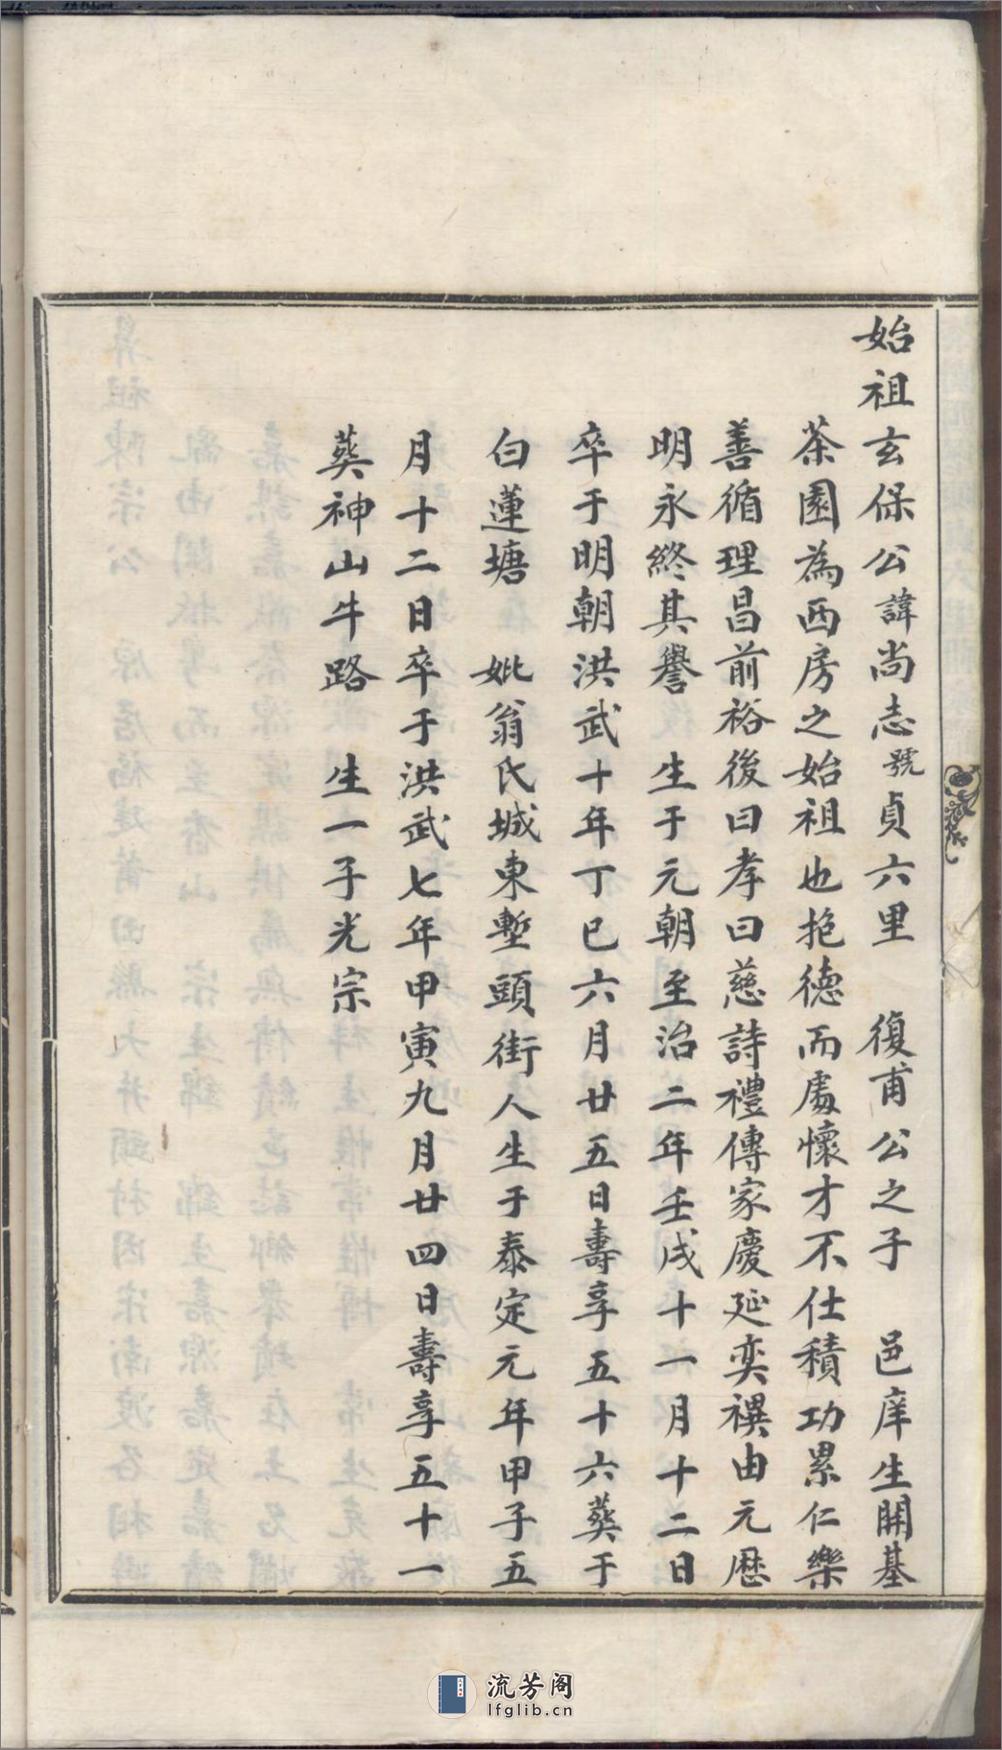 始祖玄保公諱尚志號貞六里　復甫公之子　邑庠生開基
茶園為西房之始祖也抱德而處懷才不仕積功累仁樂
善循理昌前裕後曰孝曰慈詩禮傳家慶延奕禩由元歷
明永終其譽　生于元朝至治二年壬戌十一月十二日
卒于明朝洪武十年丁巳六月廿五日壽享五十六葬于
白蓮塘　妣翁氏城東塹頭街人生于泰定元年甲子五
月十二日卒于洪武七年甲寅九月廿四日壽享五十一
葬神山牛路　生一子光宗
流芳阁
lfglib.cn